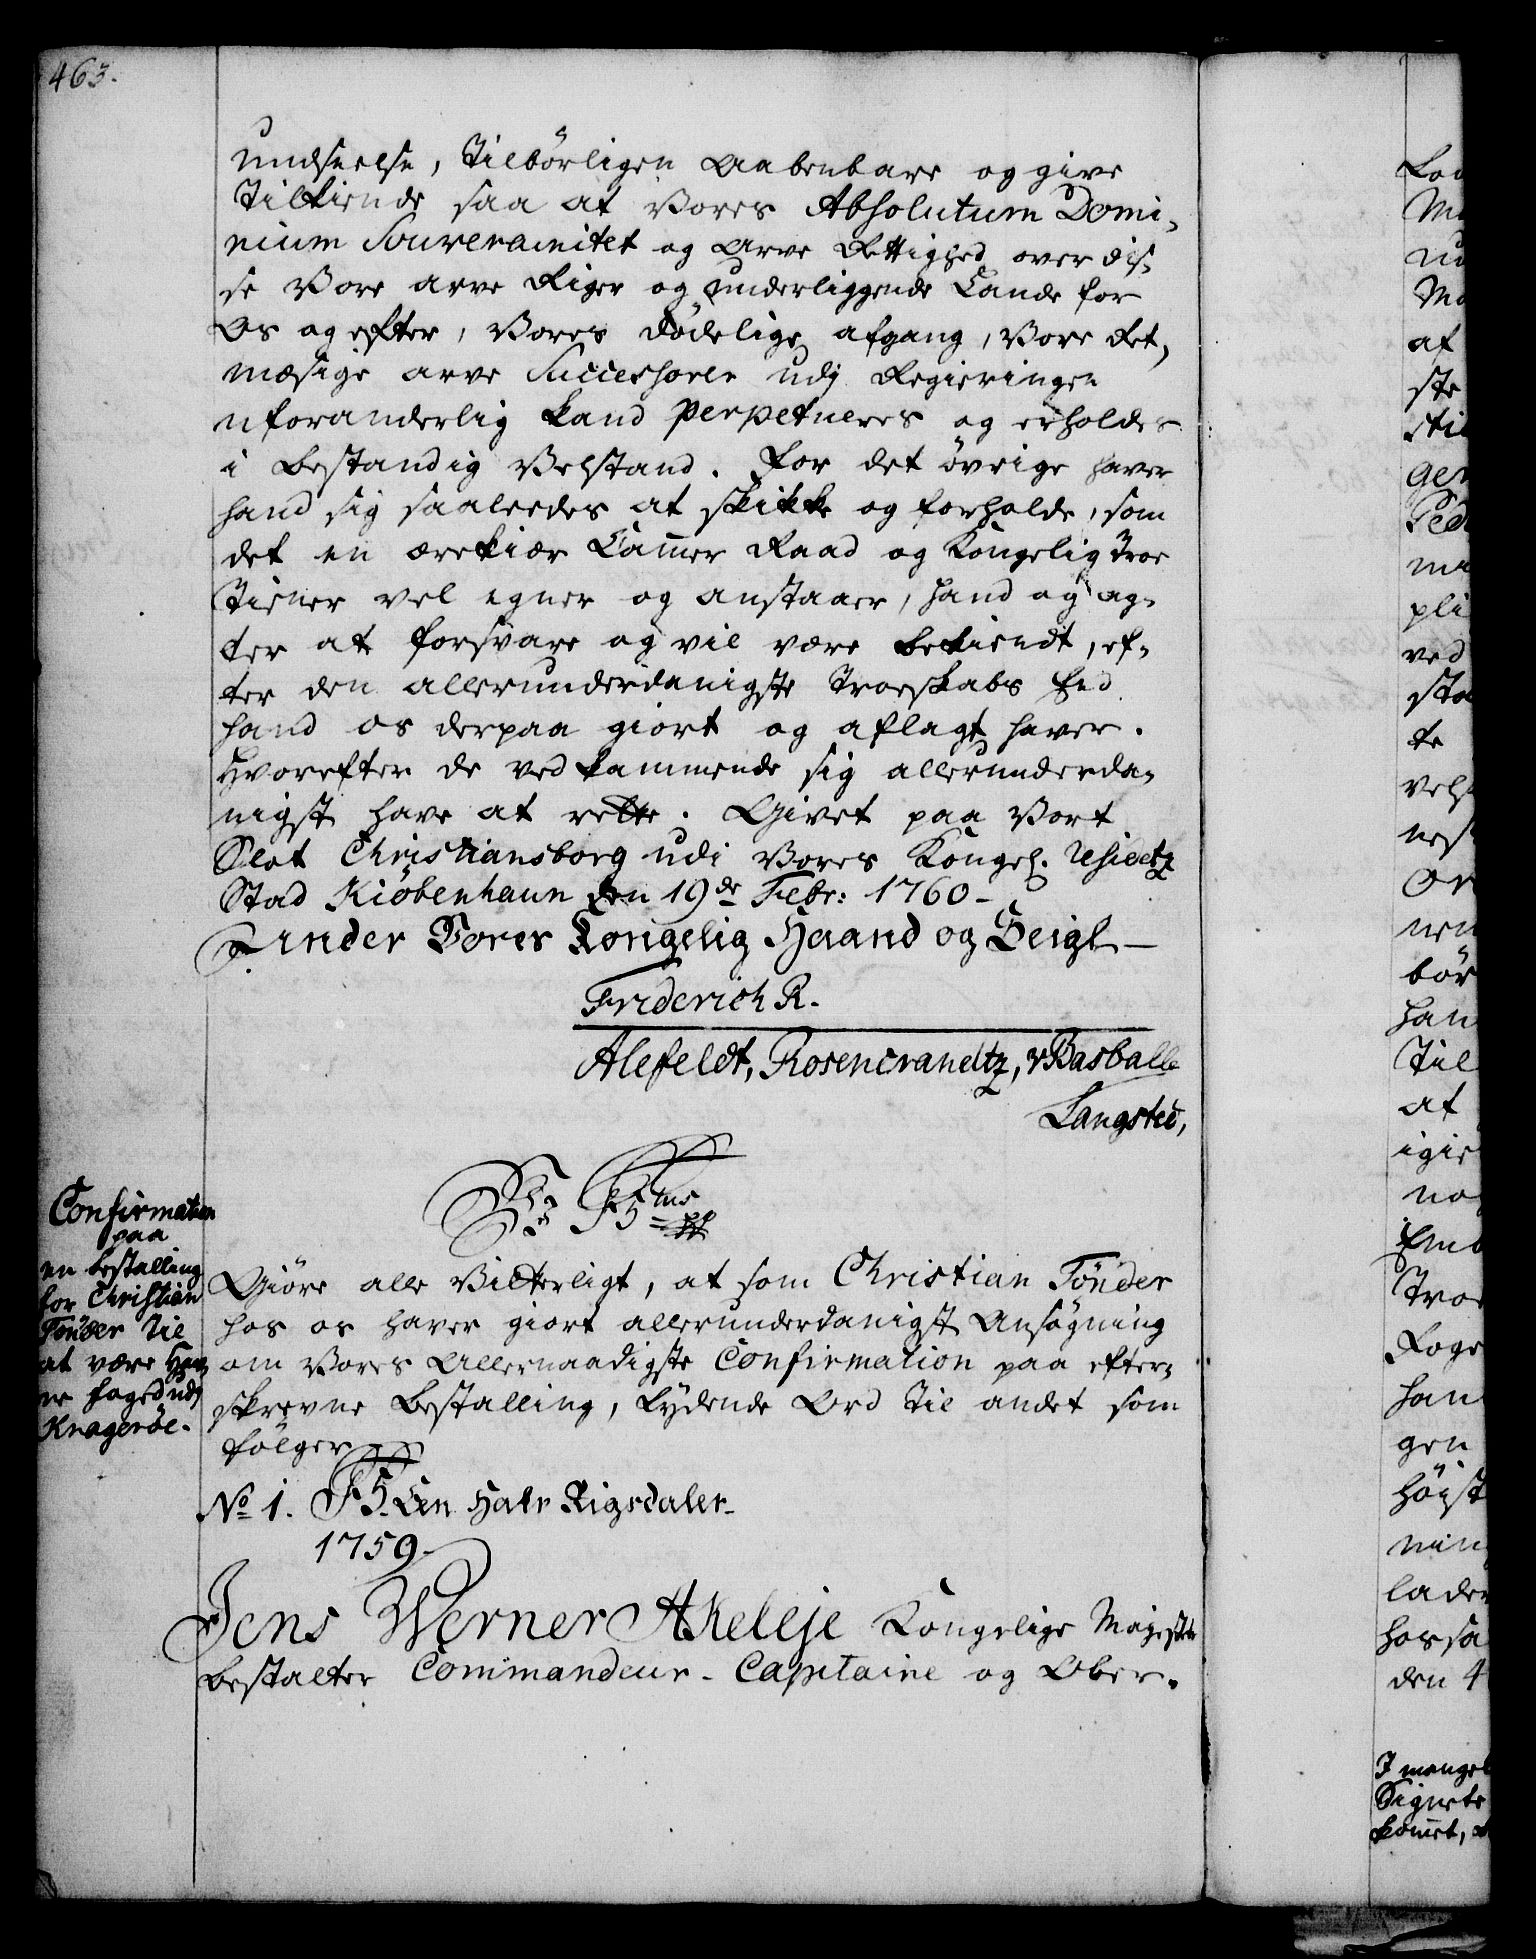 463.
undseelse, tilbörligen aabenbare og give
tilkiende saa at Vores Absolutum Domi-
nium Souverainitet og arve Rettighed over dis-
se Vore arve Riger og underliggende Lande for
Os og efter, Vores dödelige afgang, Vore Ret,
mæsige arve Successorer udj Regieringen
uforanderlig kand perpetueres og erholdes
i bestandig Velstand. For det övrige haver
hand sig saaleedes at skikke og forholde, som
det en ærekiær Cammer Raad og Kongelig Troe
Tiener vel egner og anstaaer, hand og ag-
ter at forsvare og vil være bekiendt, ef-
ter den allerunderdanigste Troeskabs Eed
hand os derpaa giort og aflagt haver.
Hvorefter de vedkommende sig allerunderda-
nigst have at rette. Givet paa Vort
Slot Christiansborg udi Vores Kongel.
Stad Kiöbenhaun den 19de Febr: 1760-
Under Vores Kongelig Haand og Seigl-
Friderich R.
Alefeldt, Rosencrandtz, v Basballe
Langsted,
Confirmation
paa
en bestalling
for Christian
Tönder til
at være Hav-
ne foged udj
Krageröe.
F5tus
Giöre alle Vitterligt, at som Christian Tönder
hos os haver giort allerunderdanigst Ansögning
om Vores Allernaadigste Confirmation paa efter-
skrevne Bestalling, lydende Ord til andet som
fölger
No 1. F5. Een Halv Rigsdaler-
1759-
Jens Werner Akeleje Kongelige Majestets
bestalter Commandeur-Capitaine og Ober-
af
ste
ved
te
bör
Til
at
den 4
I mangel
Signets